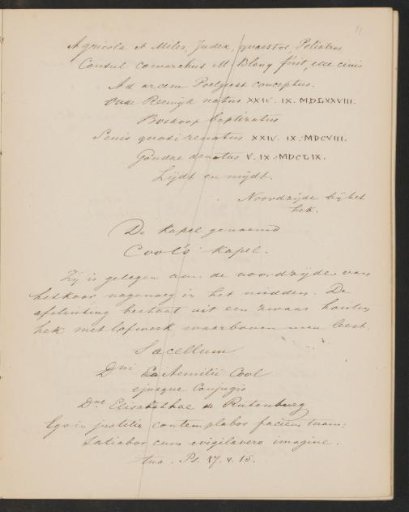 Agricola et Miles, Judex, quaestor, Poliater
Consul comarchus M. Blong fuit, ecce cinis
Ad ardem Poelgeest conceptus.
Oude Reewijk natus XXIV. IX. MDLXXVIII.
Boskoop baptizatus
Senio quasi renatus XXIV. IX. MDCVIII.
Goudae denatus V. IX. MDCLIX.
Lijdt en mijdt.
Noordzijde bij het
hek.
De Kapel genaamd
Cool's Kapel.
Zij is gelegen aan de noordzijde van
het koor nagenoeg in het midden. De
afsluiting bestaat uit een zwaar houten
hek met lofwerk waarboven men leest.
Sacellum
Dni Aemilii Cool
ejusque Conjugis
Dnae Elisabethae de Rutenburg
Ego in justitia contemplabor faciem tuam:
Satiabor cum evigilavero imagine
tua. Ps. 17. v. 15.